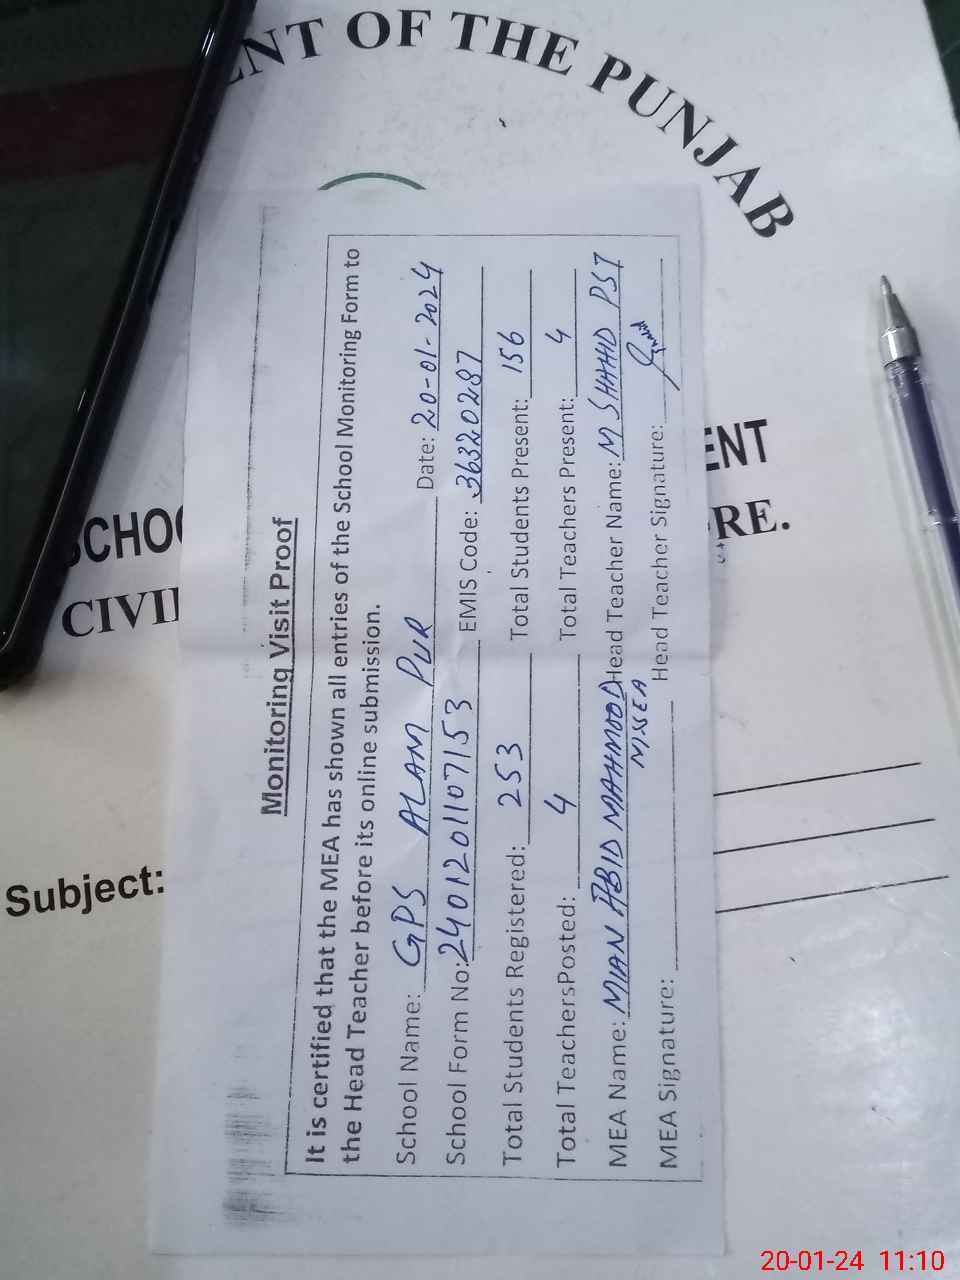 ENT OF THE PUNJAB
SCHOO
ENT
CIVIL
RE.
Subject:
Monitoring Visit Proof
It is certified that the MEA has shown all entries of the School Monitoring Form to
the Head Teacher before its online submission.
School Name: GPS ALAM PUR Date: 20-01-2024
School Form No: 2401201107153 EMIS Code: 36320287
Total Students Registered: 253 Total Students Present: 156
Total TeachersPosted: 4 Total Teachers Present: 4
MEA Name: MIAN ABID MAHMOOD Head Teacher Name: M SHAHID PST
MEA Signature: Head Teacher Signature:
20-01-24 11:10